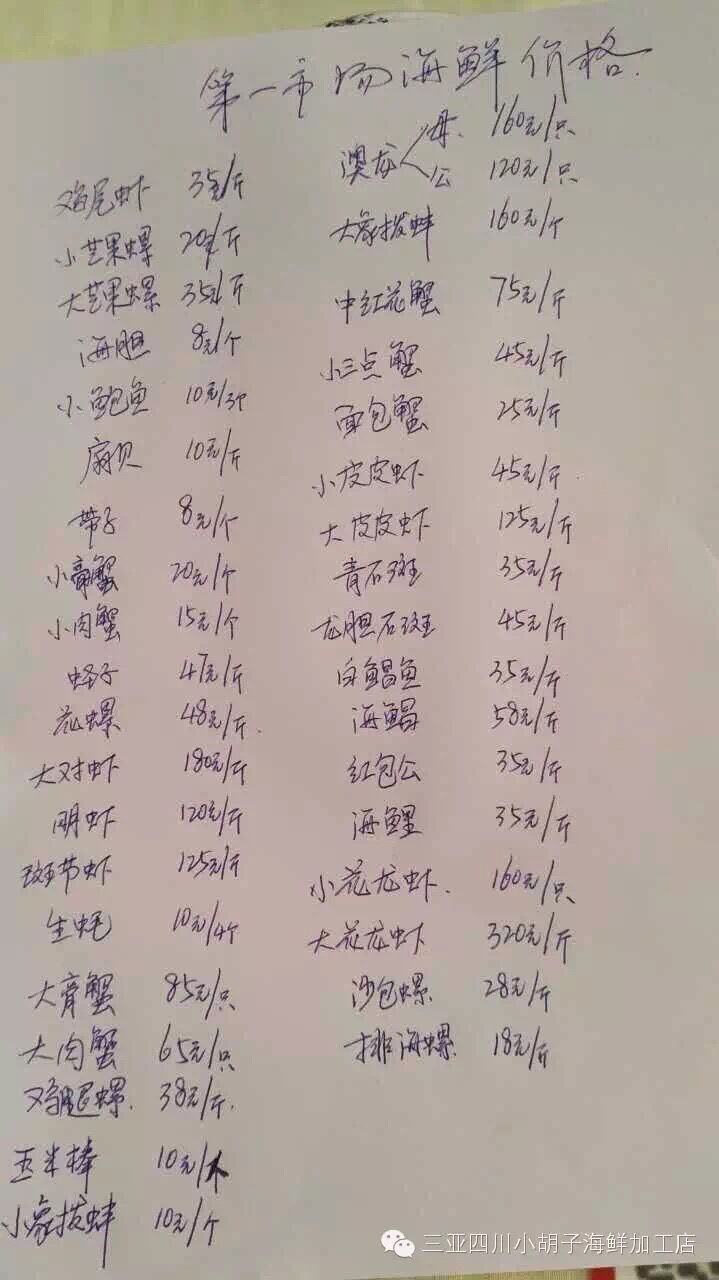 第一市场海鲜价格.
鸡尾虾 35元/斤
小芒果螺 20元/斤
大芒果螺 35元/斤
海胆 8元/个
小鲍鱼 10元/3个
扇贝 10元/斤
带子 8元/个
小膏蟹 20元/个
小肉蟹 15元/个
蛏子 47元/斤
花螺 48元/斤.
大对虾 180元/斤
明虾 120元/斤
斑节虾 125元/斤
生蚝 10元/4个
大膏蟹 85元/只
大肉蟹 65元/只
鸡腿螺. 38元/斤.
玉米棒 10元/
小象拔蚌 10元/个
澳龙 母. 160元/只
公 120元/只
大象拔蚌 160元/个
中红花蟹 75元/斤
小三点蟹 45元/斤
面包蟹 25元/斤
小皮皮虾 45元/斤.
大皮皮虾 125元/斤
青石斑 35元/斤
龙胆石斑 45元/斤
白鲳鱼 35元/斤
海鲳 58元/斤
红包公 35元/斤
海鲤 35元/斤
小花龙虾. 160元/只
大花龙虾 320元/斤
沙包螺. 28元/斤
排海螺. 18元/斤
三亚四川小胡子海鲜加工店